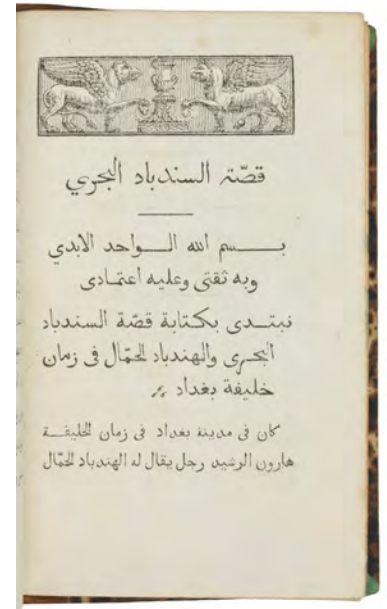 قصّة السندباد البحري
بسم الله الواحد الابدي
وبه ثقتى وعليه اعتمادى
نبتدى بكتابة قصّة السندباد
البحرى والهندباد الحمّال فى زمان
خليفة بغداد
كان فى مدينة بغداد فى زمان الخليفة
هارون الرشيد رجل يقال له الهندباد الحمّال